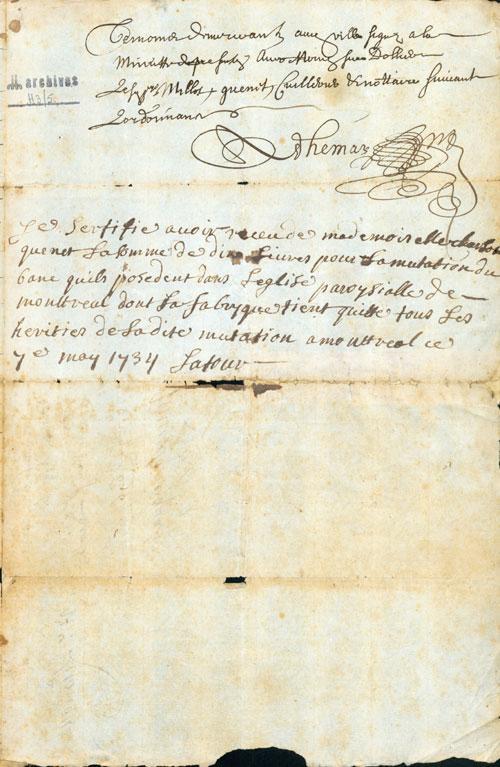 Temoins demeurant aud ville signez a la
Minutte des presentes Avec Mons.
Millot, quenet, Cuillerie & nottaire suivant
L'ordonnance
Adhemar
M. archives
Je sertifie avoir receu de mademoiselle charlot
quenet La somme de dix Livres pour La mutation du
banc quils posedent dans Leglise paroysialle de
monttreal dont La fabryque tient quitte tous Les
herities de Ladite mutation a monttreal ce
7e may 1734 Latour